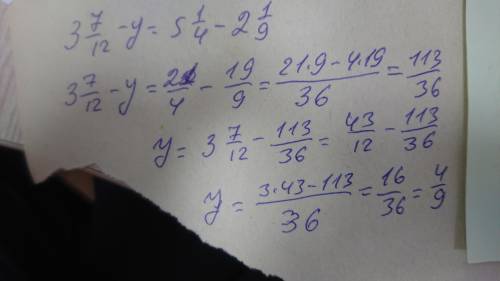 3 7/12 - y = 5 1/4 - 2 1/9
3 7/12 - y = 21/4 - 19/9 = (21·9 - 4·19)/36 = 113/36
y = 3 7/12 - 113/36 = 43/12 - 113/36
y = (3·43 - 113)/36 = 16/36 = 4/9